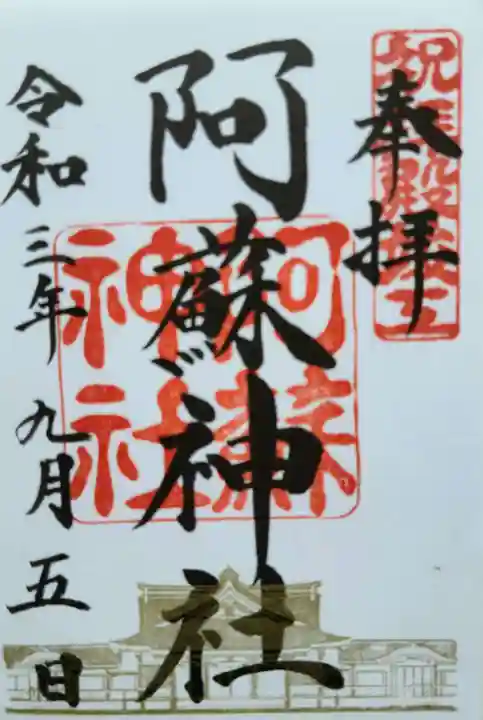 奉拝
祝拝殿竣工
阿蘇神社
阿蘇神社
令和三年九月五日